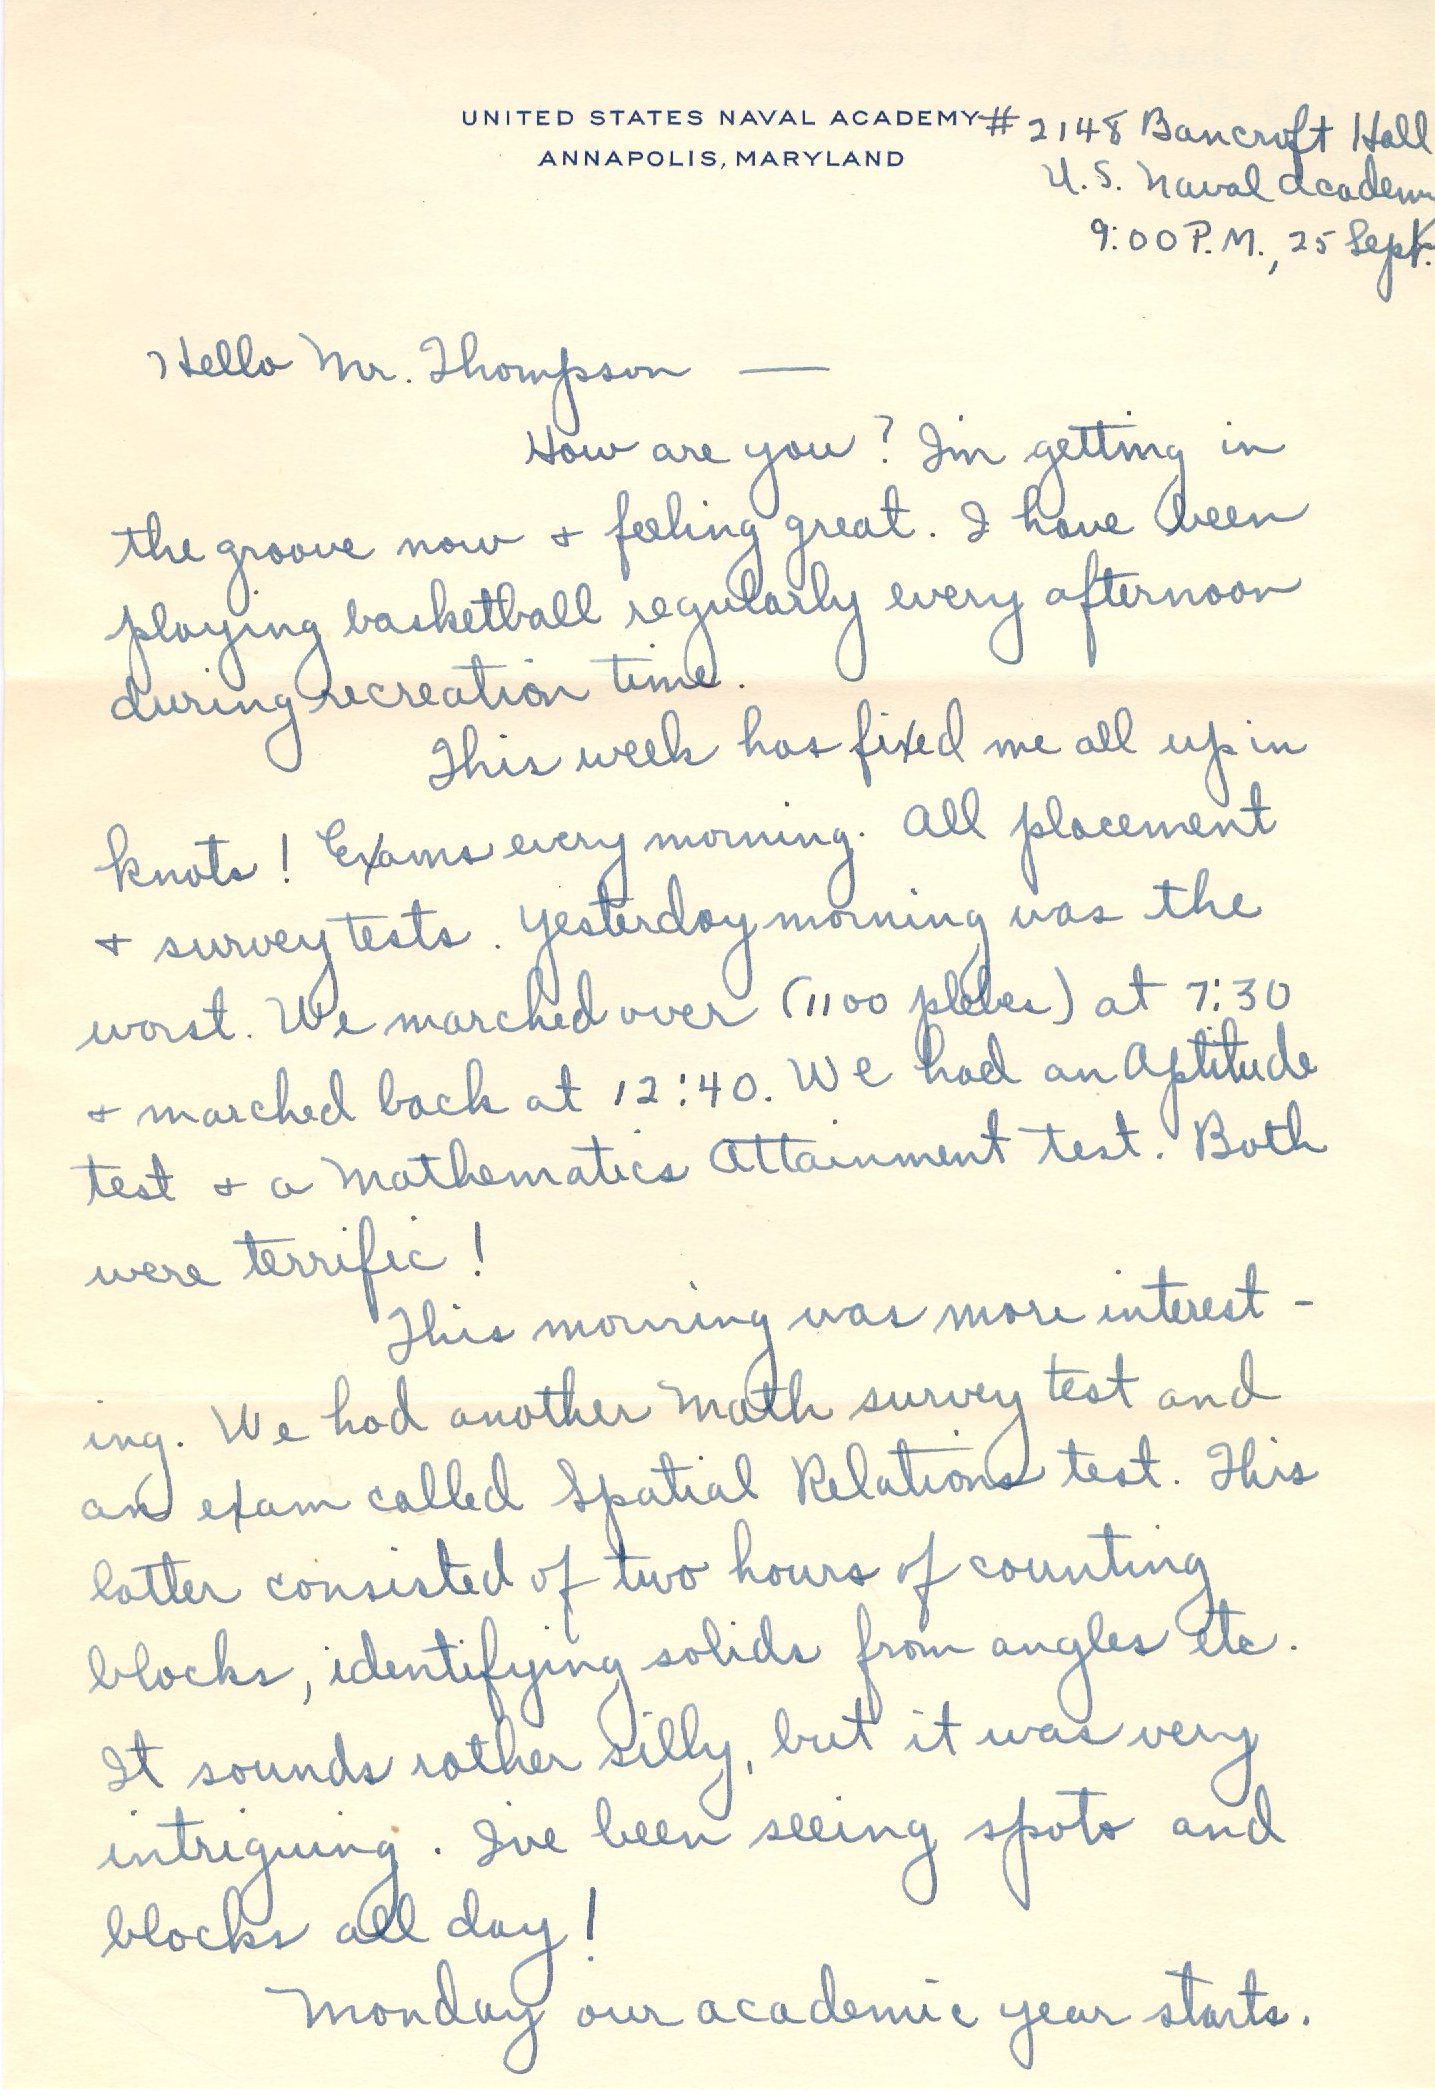 UNITED STATES NAVAL ACADEMY
ANNAPOLIS, MARYLAND
# 2148 Bancroft Hall
U.S. Naval Academy
9:00 P.M., 25 Sept.
Hello Mr. Thompson —
How are you? I'm getting in
the groove now + feeling great. I have been
playing basketball regularly every afternoon
during recreation time.
This week has fixed me all up in
knots! Exams every morning. All placement
+ survey tests. Yesterday morning was the
worst. We marched over (1100 plebes) at 7:30
+ marched back at 12:40. We had an Aptitude
test + a Mathematics Attainment test. Both
were terrific!
This morning was more interest-
ing. We had another Math survey test and
an exam called Spatial Relations test. This
latter consisted of two hours of counting
blocks, identifying solids from angles etc.
It sounds rather silly, but it was very
intriguing. I've been seeing spots and
blocks all day!
Monday our academic year starts.